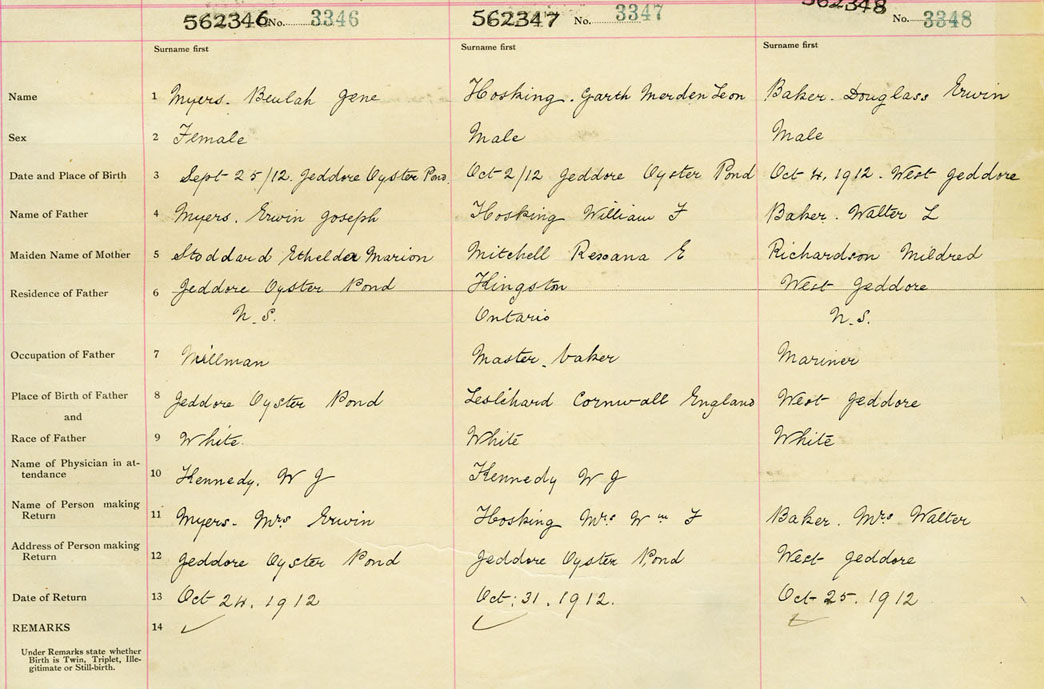 562346 No. 3346 562347 No. 3347 562348 No. 3348
Surname first Surname first Surname first
Name 1 Myers. Beulah Jene Hosking. Garth Merden Leon Baker. Douglass Erwin
Sex 2 Female Male Male
Date and Place of Birth 3 Sept 25/12. Jeddore Oyster Pond. Oct 2/12 Jeddore Oyster Pond Oct 4, 1912. West Jeddore
Name of Father 4 Myers. Erwin Joseph Hosking William F Baker. Walter L
Maiden Name of Mother 5 Stoddard Ethelda Marion Mitchell Rexana E Richardson Mildred
Residence of Father 6 Jeddore Oyster Pond Kingston West Jeddore
N.S. Ontario N.S.
Occupation of Father 7 Millman Master baker Mariner
Place of Birth of Father 8 Jeddore Oyster Pond Leslihard Cornwall England West Jeddore
and
Race of Father 9 White. White White
Name of Physician in at-
tendance 10 Kennedy. W J Kennedy W J
Name of Person making
Return 11 Myers- Mrs Erwin Hosking Mrs Wm F Baker. Mrs Walter
Address of Person making
Return 12 Jeddore Oyster Pond Jeddore Oyster Pond West Jeddore
Date of Return 13 Oct 24. 1912 Oct: 31. 1912. Oct 25. 1912
REMARKS 14
Under Remarks state whether
Birth is Twin, Triplet, Ille-
gitimate or Still-birth.